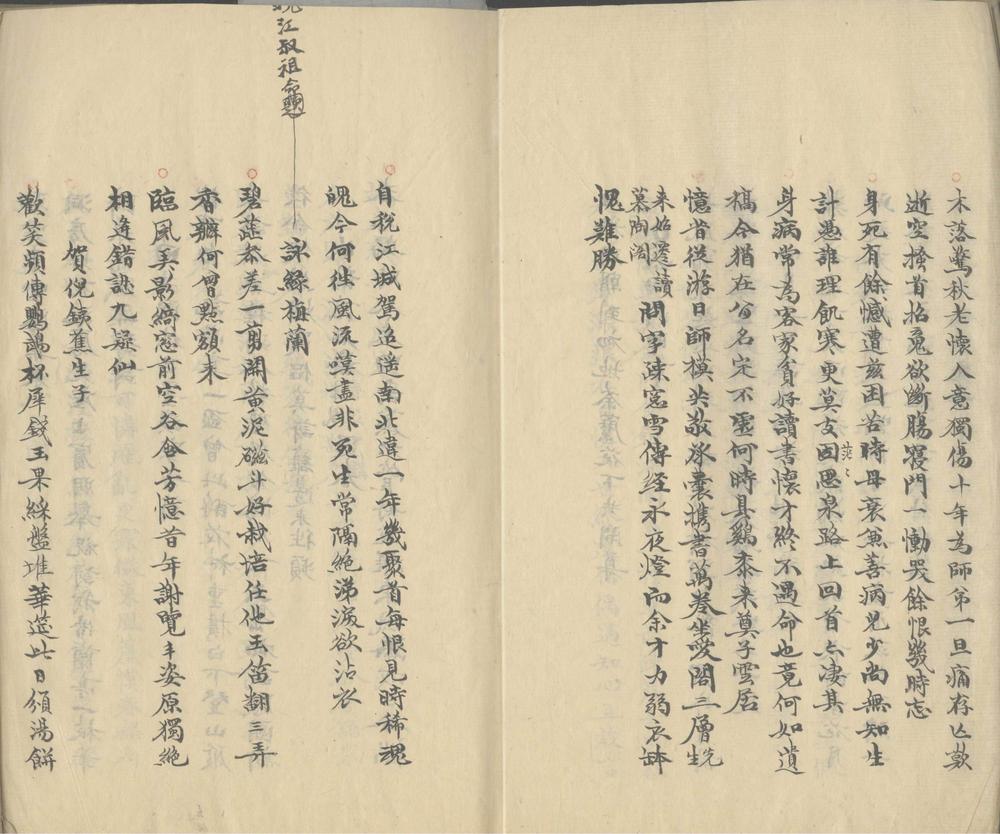 木落驚秋老懷人意獨傷十年為師弟一旦痛存亡歎
逝空搔首招䰟欲斷腸寢門一慟哭餘恨幾時忘
身死有餘憾遭茲困苦時母衰兼善病兒少尚無知生
計憑誰理飢寒更莫支因思泉路上回首亦凄其
茫〻
身病常為客家貧好讀書懷才終不遇命也竟何如遺
稿今猶在公名定不虛何時具雞黍來奠子雲居
憶昔從游日師模共敬承囊攜書萬卷坐愛閣三層先生
未始遷讀
慕陶閣
問字陳窓雪傳經永夜燈而余才力弱衣缽
愧難勝
江取祖命題
自稅江城駕逍遙南北違一年幾聚首每恨見時稀魂
魄今何往風流漠盡非死生常隔絕涕淚欲沾衣
詠綠梅蘭
碧蕊參差一剪開黃泥磁斗好栽涪任他玉笛翻三弄
香瓣何曾點額來
臨風美影綺窓前空谷含芳憶昔年謝覽丰姿原獨絕
相逢錯認九嶷仙
賀倪銕蕉生子
歡笑頻傳鸚鵡杯犀錢玉果綵盤堆華筵此日頒湯餅